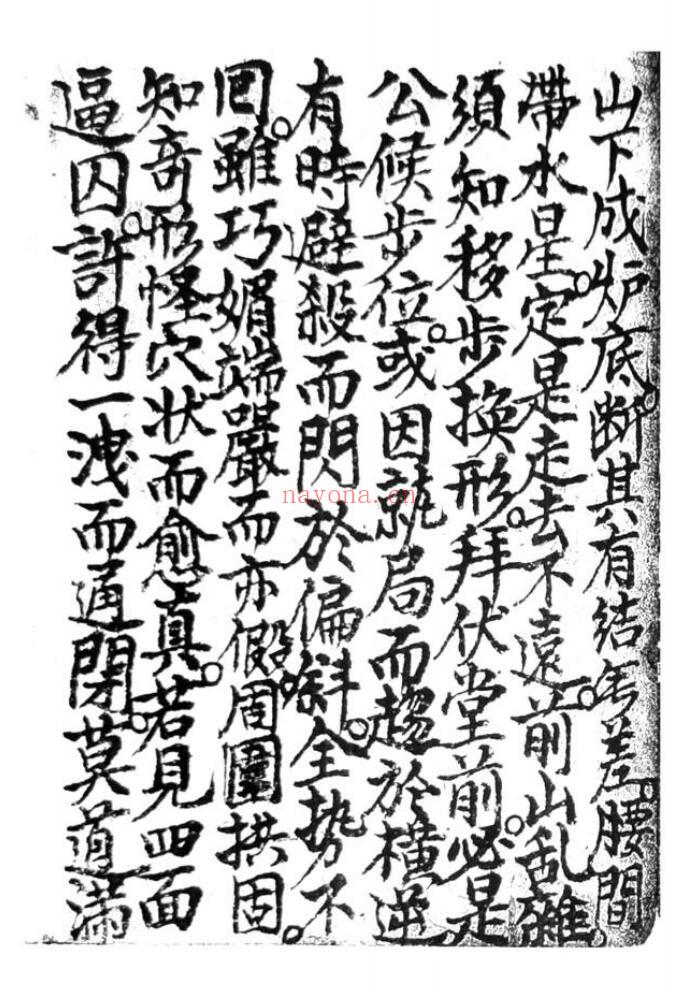 山下成炉底。断其有结無差。腰間
帶水星。定是走去不遠。前山乱雜。
須知移步換形。拜伏堂前。必是
公候步位。或因就局而趨於橫逆
有時避殺而閃於偏斜。全势不
囘。雖巧媚端嚴而亦假。周圍拱固。
知奇形怪穴状而愈真。若見四面
逼囚。許得一洩而通閉。莫道滿
nayona.cn